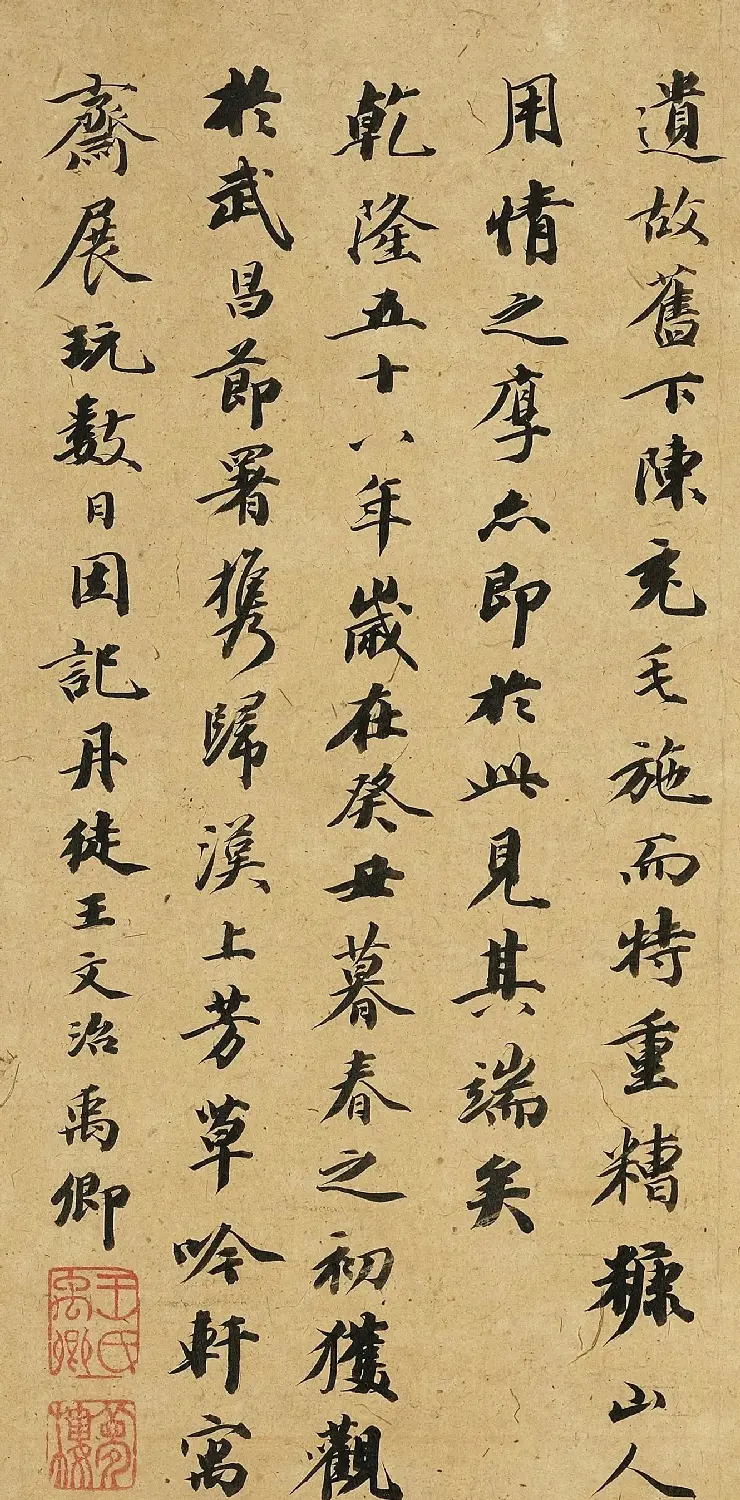 遺故舊下陳充毛施而特重糟糠山人
用情之厚亦即於此見其端矣
乾隆五十八年歲在癸丑暮春之初獲觀
於武昌節署攜歸漢上芳草吟軒寓
齋展玩數日因記丹徒王文治禹卿
王氏禹卿
夢樓